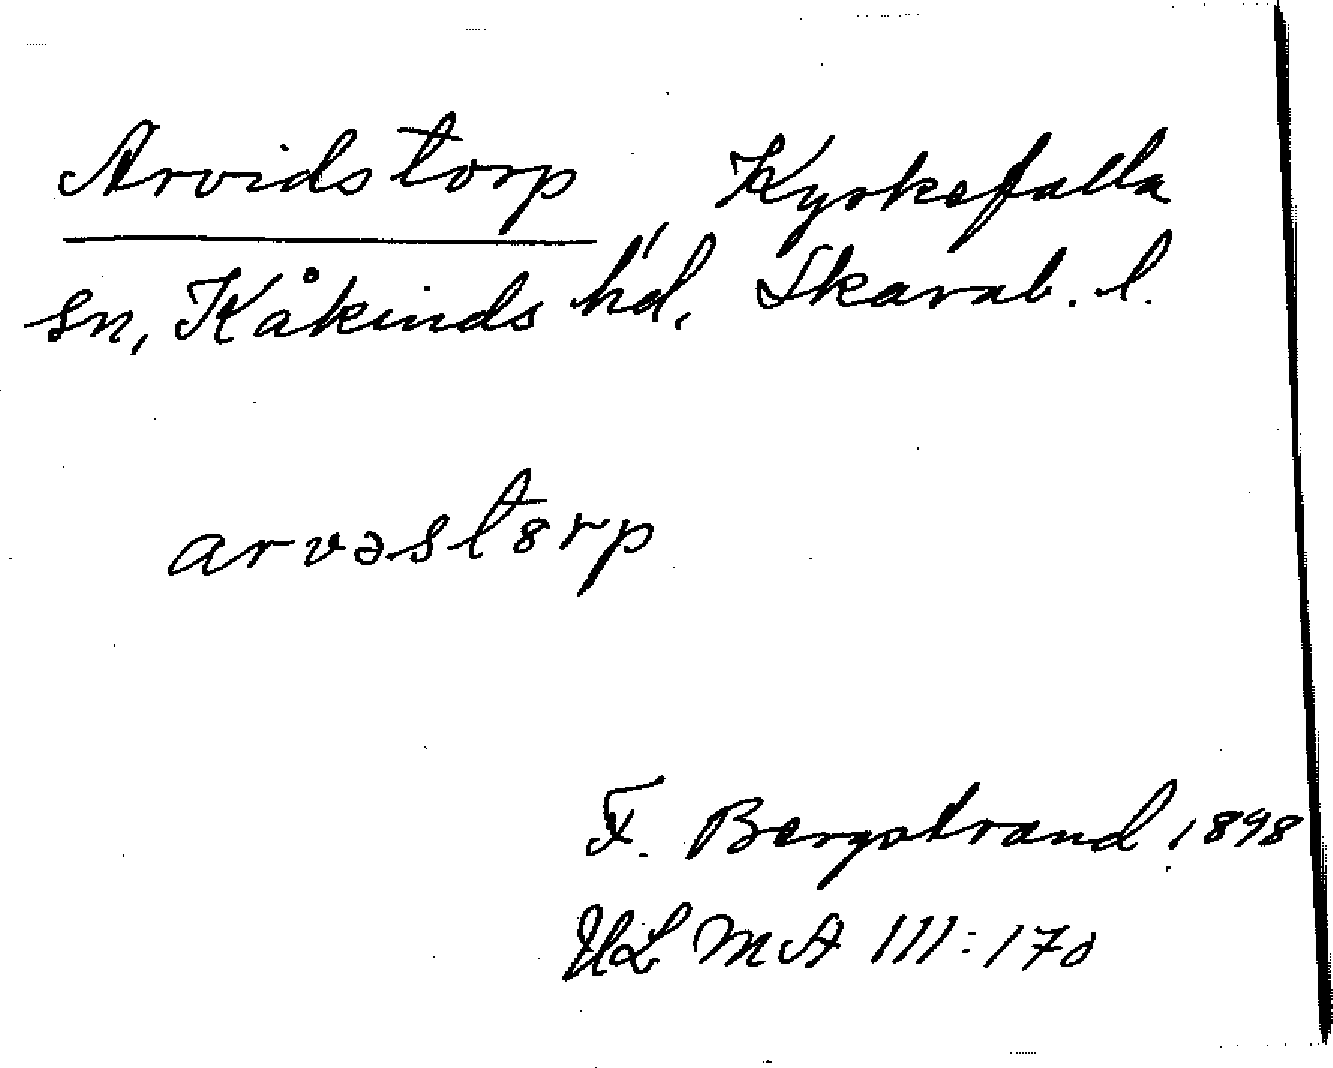 Arvidstorp Kyrkefalla
sn, Kåkinds hd, Skarab. l.
arvəstorp
F. Bergstrand 1898
ULMA 111:170